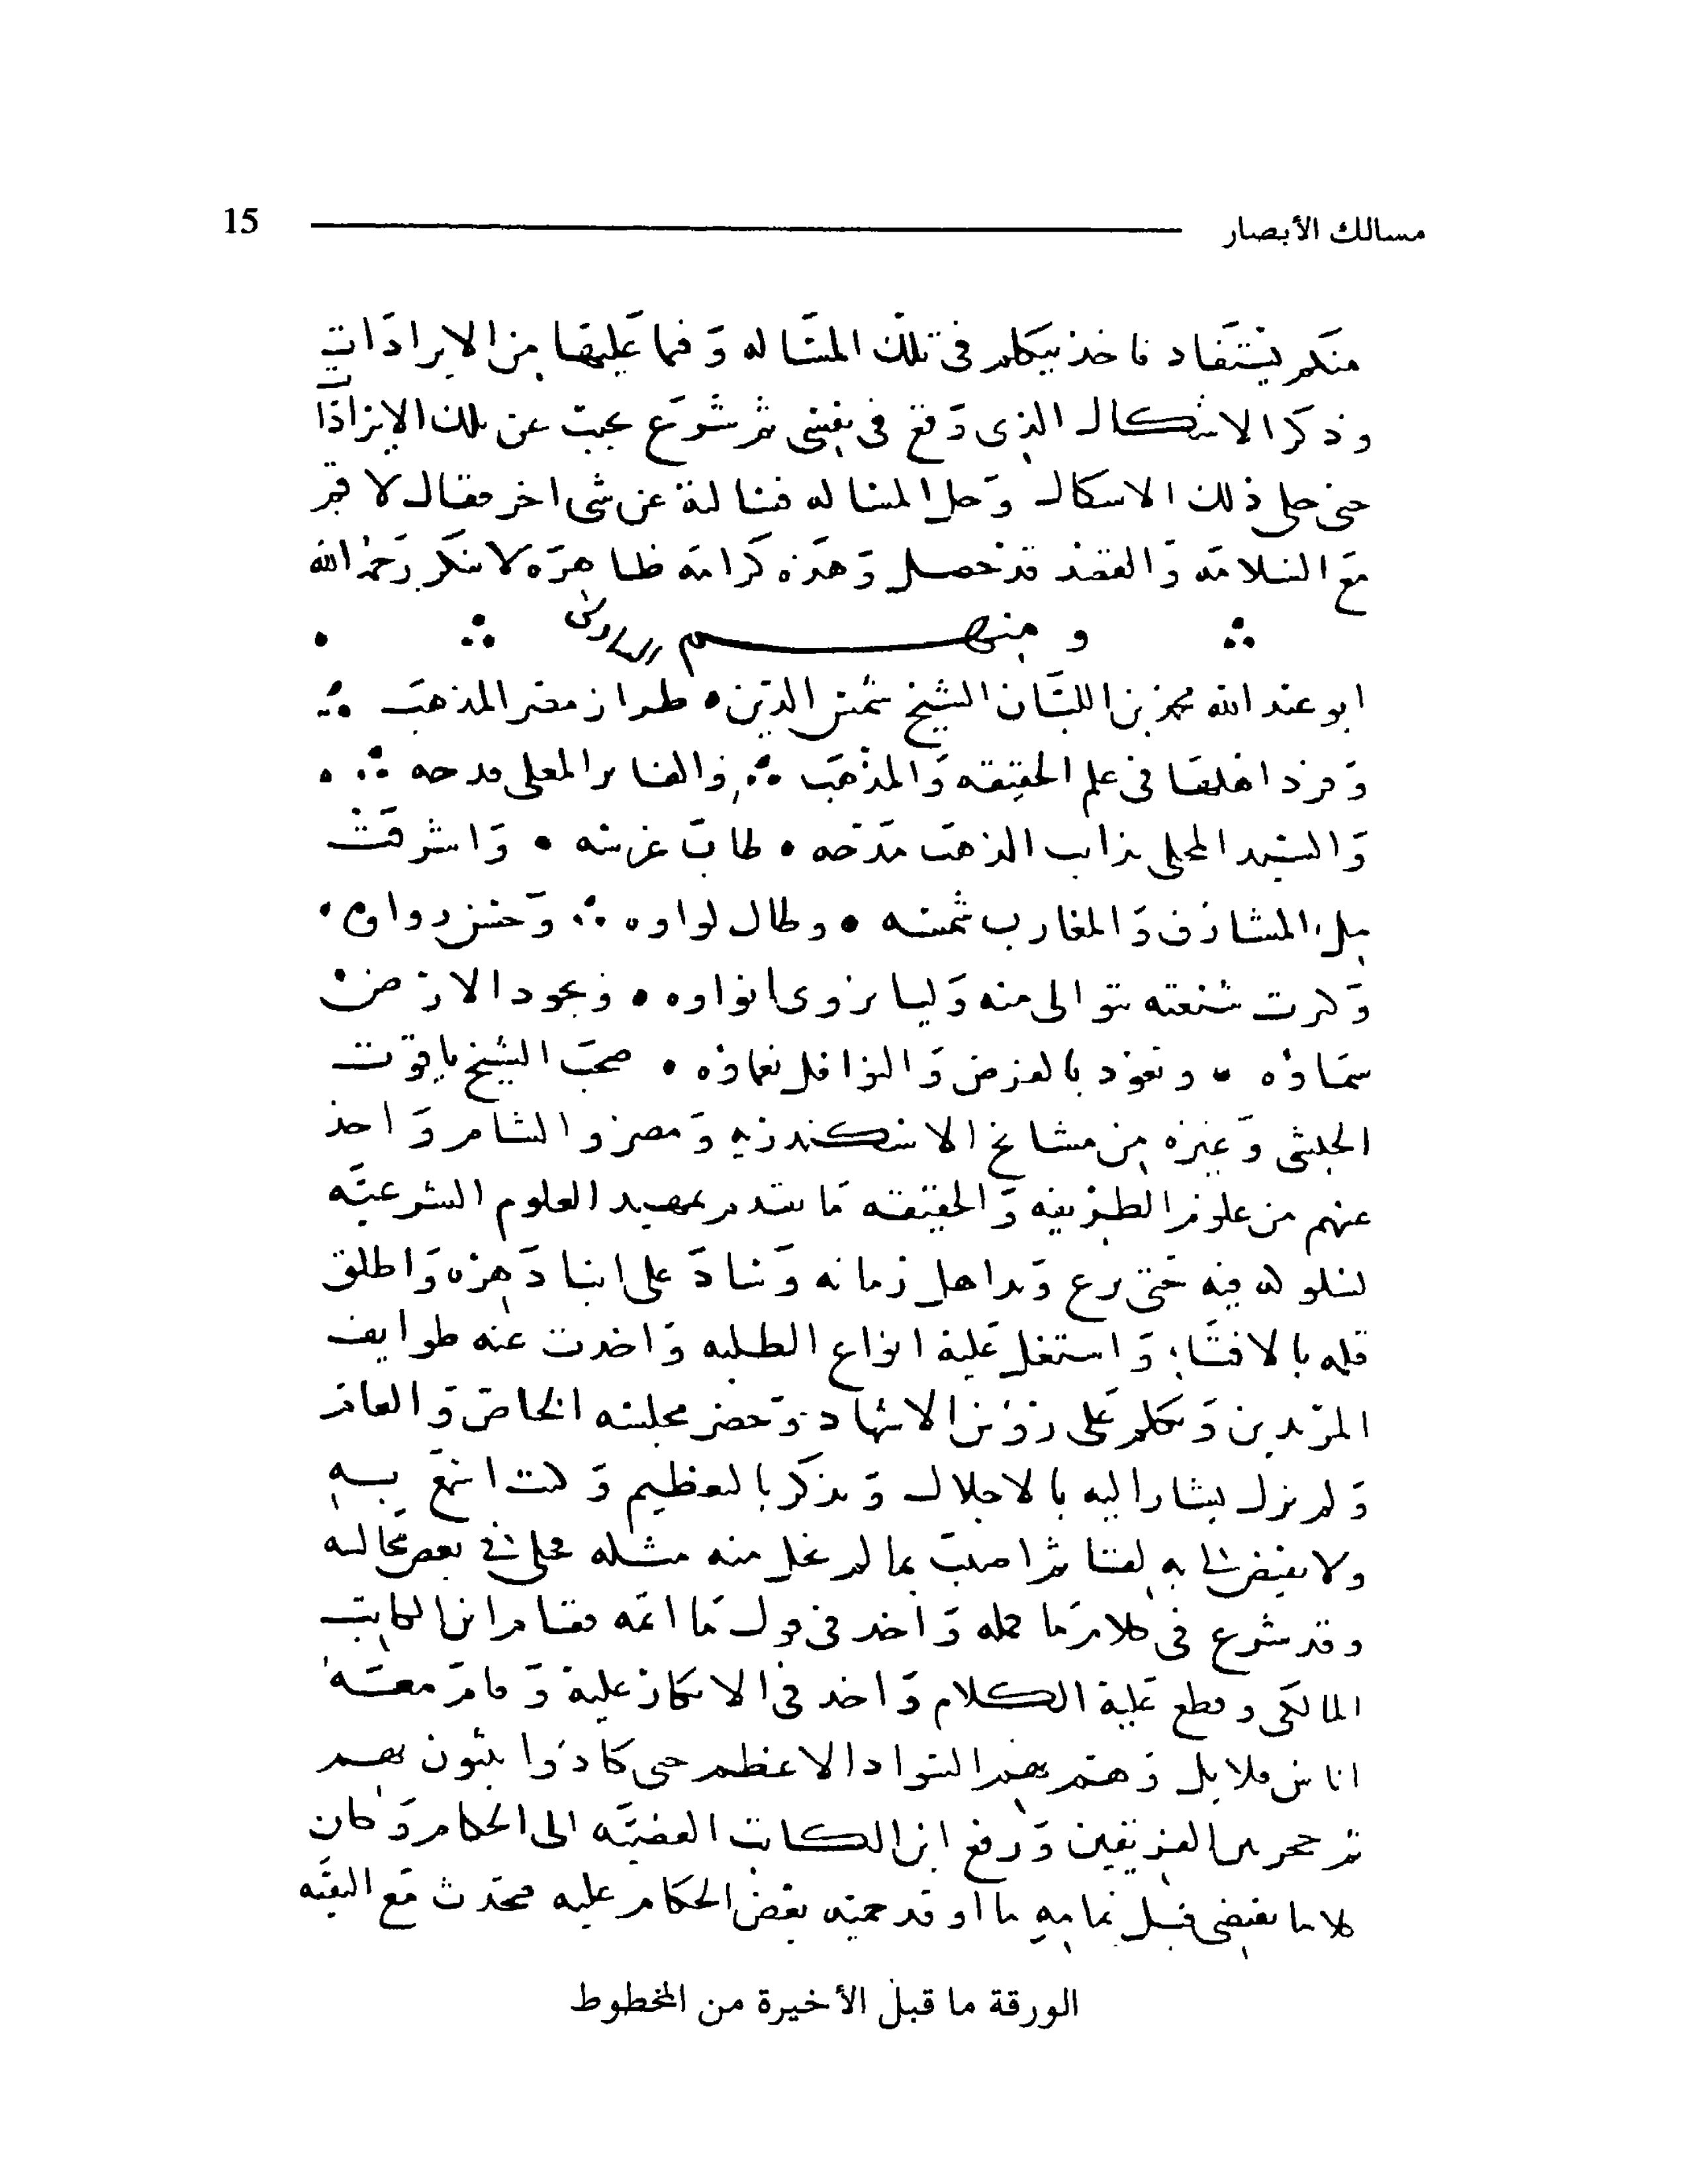 مسالك الأبصار 15
منكم يستفاد فاخذ يتكلم فى تلك المساله وفما عليها من الايرادات
وذكر الاشكال الذى وقع فى نفسى ثم شرع يجيب عن تلك الايرادا
حتى حل ذلك الاشكال وحل المساله فساله عن شى اخر فقال لا قم
مع السلامه والقصد قد حصل وهذه كرامة ظاهره لا تنكر رحمه الله
ومنهم
ابو عبد الله محمد بن اللبان الشيخ شمس الدين طراز مصر المذهب
وفرد اهلها فى علم الحقيقه والمذهب المعلى قدحه
والسيد المحلى بذاب الذهب مدحه طاب غرسه واشرقت
المشارق والمغارب شمسه وطال لواوه وحسن رواوه
تتوالى منه وليا يروى انواوه ويجود الارض
سماوه ويعود بالفرض والنوافل نعماوه صحب الشيخ ياقوت
الحبشى وغيره من مشايخ الاسكندريه ومصر والشام واخذ
عنهم من علوم الطريقه والحقيقه ما تقدم تمهيد العلوم الشرعيه
لسلوكه فيه حتى برع وبد اهل زمانه وساد على ابنا دهره واطلق
قلمه بالافتا واشتغل عليه انواع الطلبه واخذت عنه طوايف
المريدين وتكلم على روس الاشهاد وحضر مجلسه الخاص والعام
ولم يزل يشار اليه بالاجلال ويذكر بالتعظيم وكنت اسمع به
ولا يقيض لى به لقا ثم اصيب بما لم يخل منه مثله فى بعض مجالسه
وقد شرع فى كلام واخذ فى قول ما اتمه فقام ابن الكاتب
المالكى وقطع عليه الكلام واخذ فى الانكار عليه وقام معه
اناس قلايل وهم بهم السواد الاعظم حتى كادوا يثبون بهم
ثم حجز بين الفريقين ورفع ابن الكاتب القضيه الى الحكام وكان
بعض الحكام عليه فتحدث مع البقيه
الورقة ما قبل الأخيرة من المخطوط